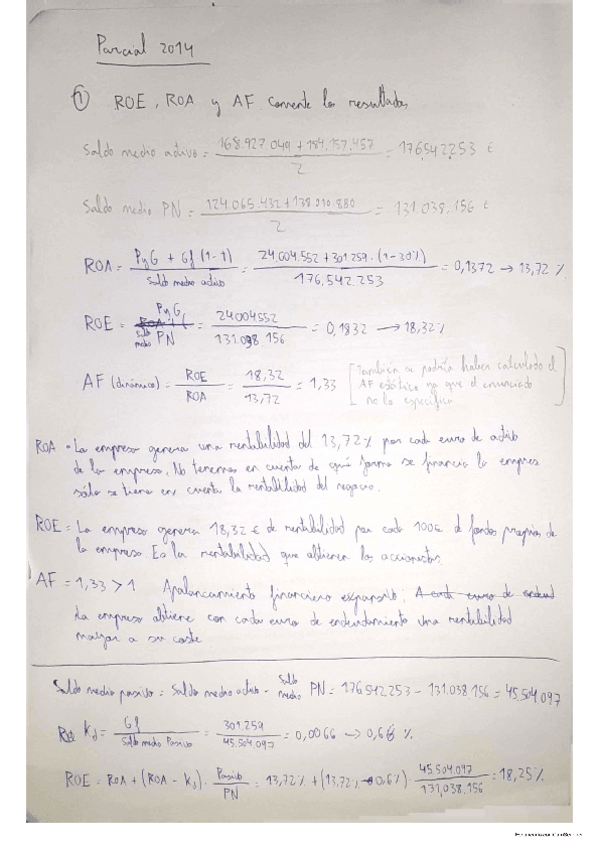 Parcial 2014
① ROE, ROA y AF. Comente los resultados
Saldo medio activo = (168.927.049 + 184.157.457) / 2 = 176.542.253 €
Saldo medio PN = (124.065.432 + 138.010.880) / 2 = 131.038.156 €
ROA = (PyG + Gf (1-t)) / Saldo medio activo = (24.004.552 + 301.259 · (1-30%)) / 176.542.253 = 0,1372 → 13,72 %
ROE = PyG / Saldo medio PN = 24004552 / 131.038.156 = 0,1832 → 18,32%
AF (dinámico) = ROE / ROA = 18,32 / 13,72 = 1,33 [También se podría haber calculado el
AF estático ya que el enunciado
no lo especifica]
ROA = La empresa genera una rentabilidad del 13,72% por cada euro de activo
de la empresa. No tenemos en cuenta de qué forma se financia la empresa
sólo se tiene en cuenta la rentabilidad del negocio.
ROE = La empresa genera 18,32 € de rentabilidad por cada 100€ de fondos propios de
la empresa. Es la rentabilidad que obtienen los accionistas.
AF = 1,33 > 1 Apalancamiento financiero expansivo: A cada euro de endeud
La empresa obtiene con cada euro de endeudamiento una rentabilidad
mayor a su coste
Saldo medio pasivo = Saldo medio activo - Saldo medio PN = 176.542.253 - 131.038.156 = 45.504.097
Kd = Gf / Saldo medio Pasivo = 301.259 / 45.504.097 = 0,0066 → 0,66 %
ROE = ROA + (ROA - Kd) · Pasivo / PN = 13,72% + (13,72% - 0,6%) · 45.504.097 / 131,038,156 = 18,25%